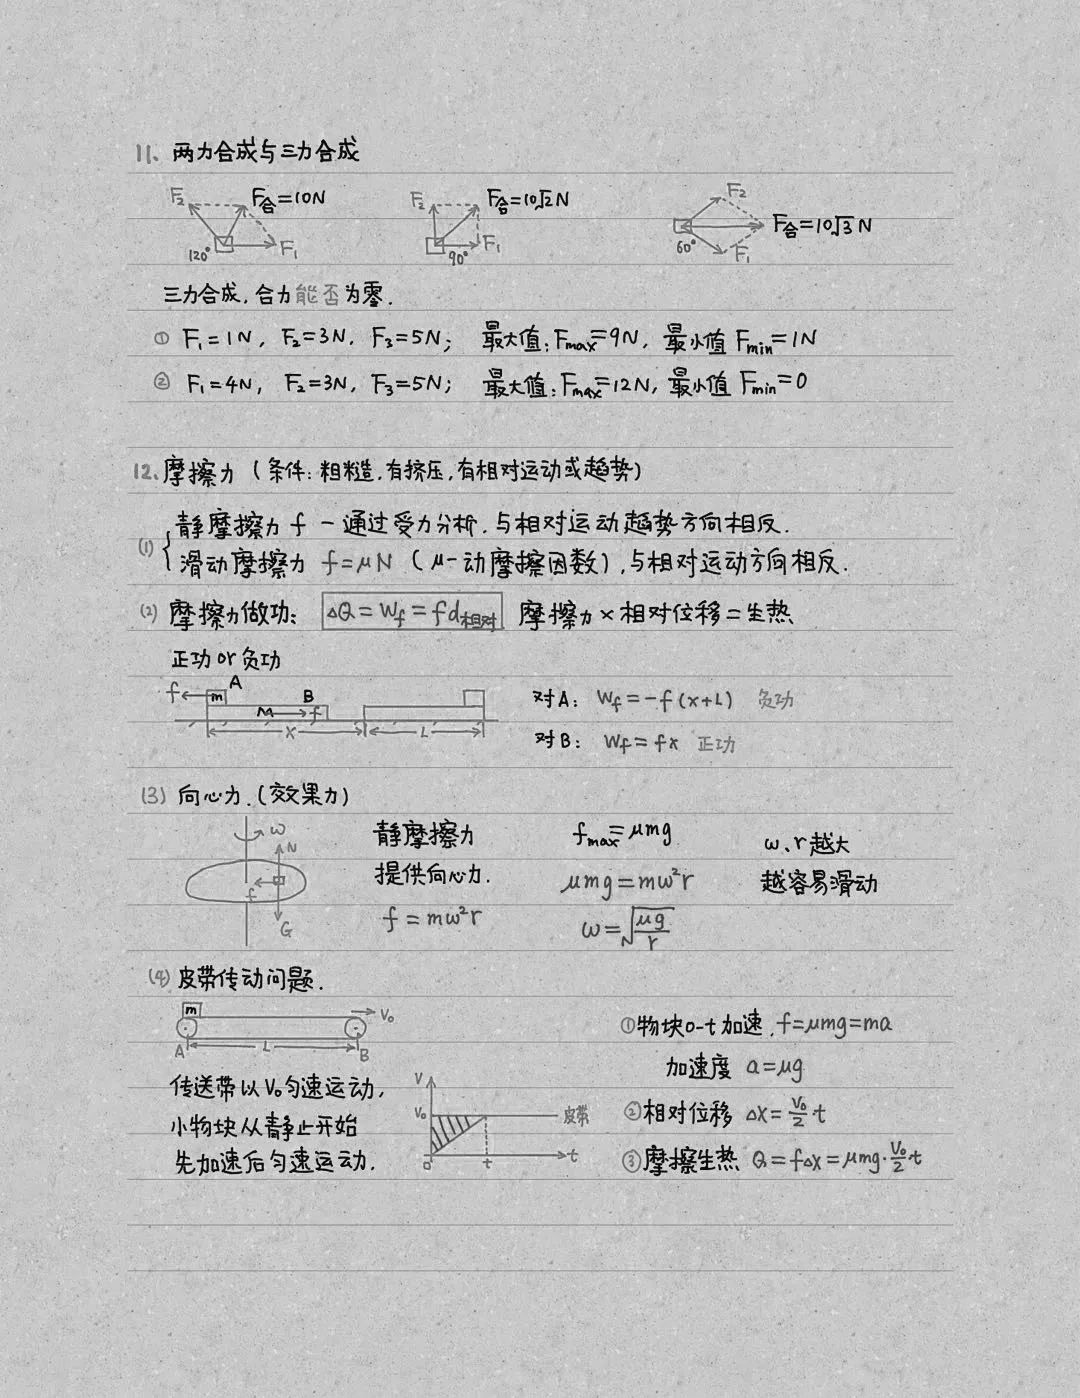 11、两力合成与三力合成
F₂ F合=10N 120° F₁
F₂ F合=10√2N 90° F₁
F₂ F合=10√3N 60° F₁
三力合成,合力能否为零.
① F₁=1N, F₂=3N, F₃=5N; 最大值:Fmax=9N, 最小值 Fmin=1N
② F₁=4N, F₂=3N, F₃=5N; 最大值:Fmax=12N, 最小值 Fmin=0
12、摩擦力(条件:粗糙,有挤压,有相对运动或趋势)
(1) { 静摩擦力 f - 通过受力分析,与相对运动趋势方向相反.
滑动摩擦力 f=μN (μ-动摩擦因数),与相对运动方向相反.
(2) 摩擦力做功: ΔQ=Wf=fd相对 摩擦力×相对位移=生热
正功or负功
f m A M B f X L
对A: Wf=-f(x+L) 负功
对B: Wf=fx 正功
(3) 向心力.(效果力)
ω N f G
静摩擦力
提供向心力.
f=mω²r
fmax=μmg
μmg=mω²r
ω=√(μg/r)
ω、r越大
越容易滑动
(4) 皮带传动问题.
m V₀
A L B
传送带以V₀匀速运动,
小物块从静止开始
先加速后匀速运动.
V V₀ 皮带 0 t t
①物块0-t加速,f=μmg=ma
加速度 a=μg
②相对位移 Δx=V₀/2 t
③摩擦生热 Q=fΔx=μmg·V₀/2 t